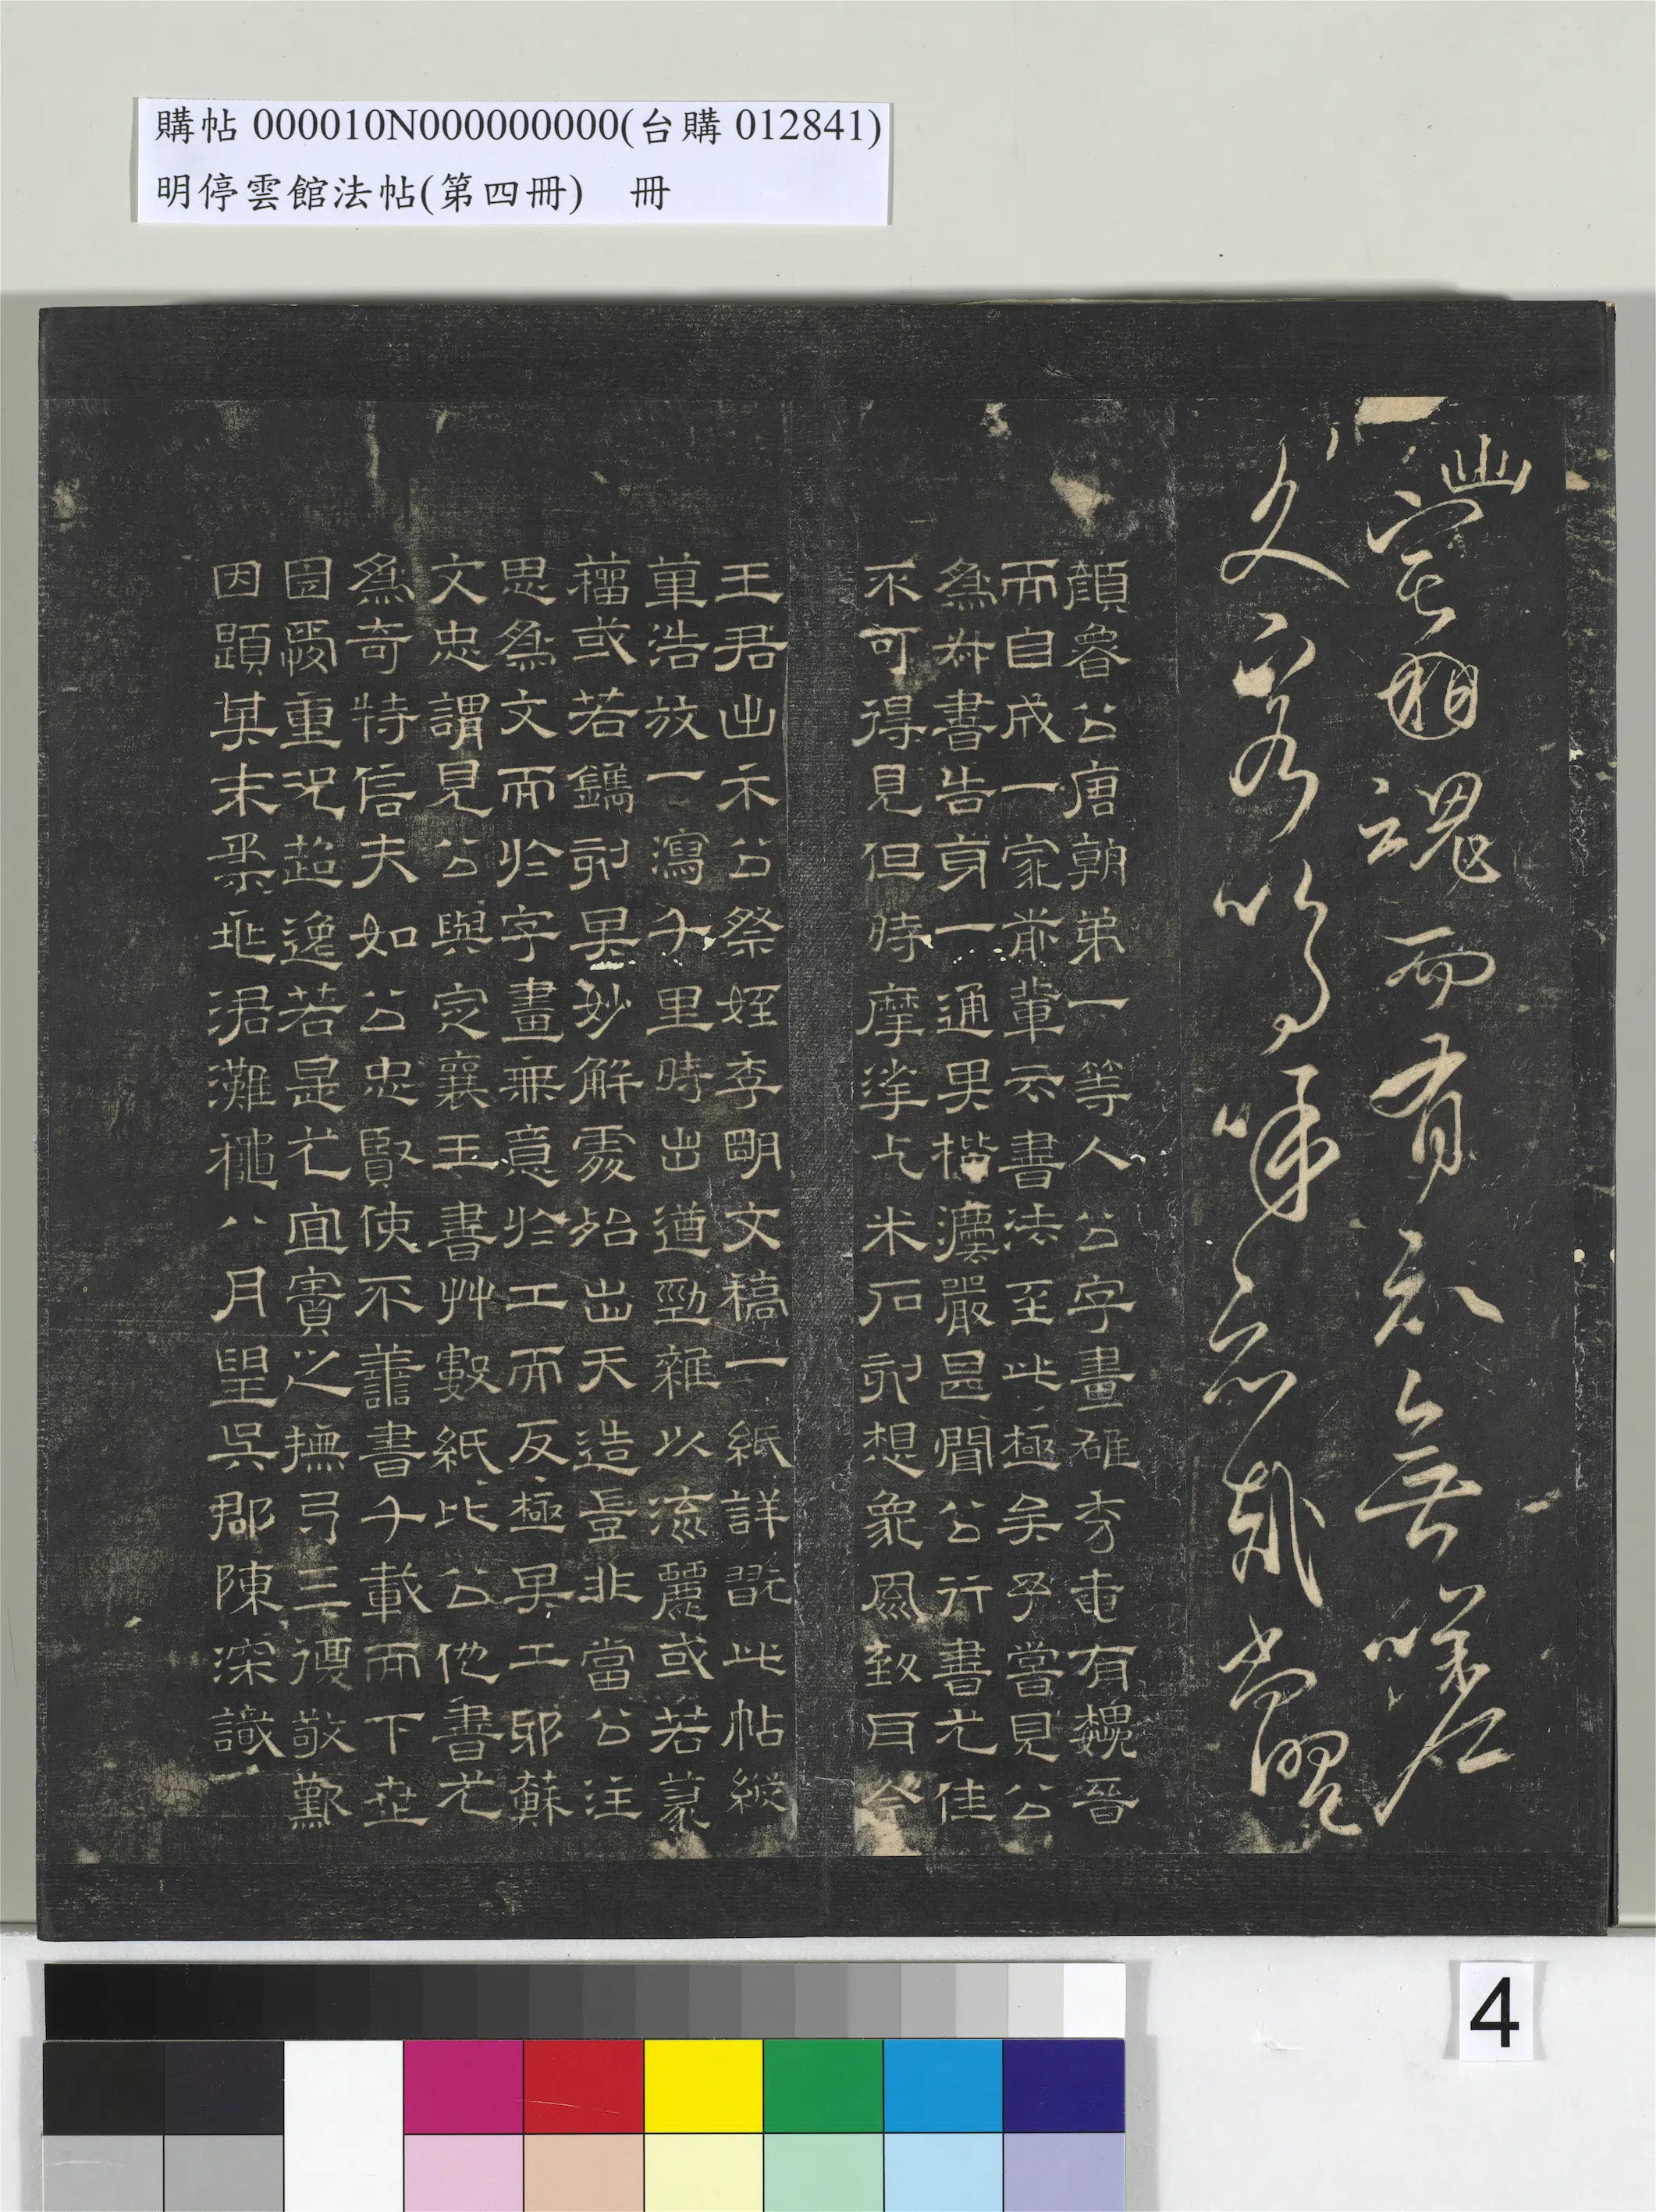 購帖 000010N000000000(台購 012841)
明停雲館法帖(第四冊) 冊
幽宅魂而有知無嗟
久客嗚呼哀哉尚饗
顏魯公唐朝第一等人公字畫雄秀奄有魏晉
而自成一家前輩云書法至此極矣予嘗見公
為書告身一通其楷法嚴甚聞公行書尤佳
不可得見但時摩挲乞米石刻想象風致耳今
王君出示公祭姪季明文稿一紙詳翫此帖縱
筆浩放一瀉千里時出遒勁雜以流麗或若篆
籀或若鐫刻其妙解處殆出天造豈非當公注
思為文而於字畫無意於工而反極其工邪蘇
文忠謂見公與定襄王書艸數紙比公他書尤
為奇特信夫如公忠賢使不善書千載而下世
固愛重況超逸若是尤宜寶之撫弓三復敬歎
因題其末柔兆涒灘穐八月朢吳郡陳深識
4